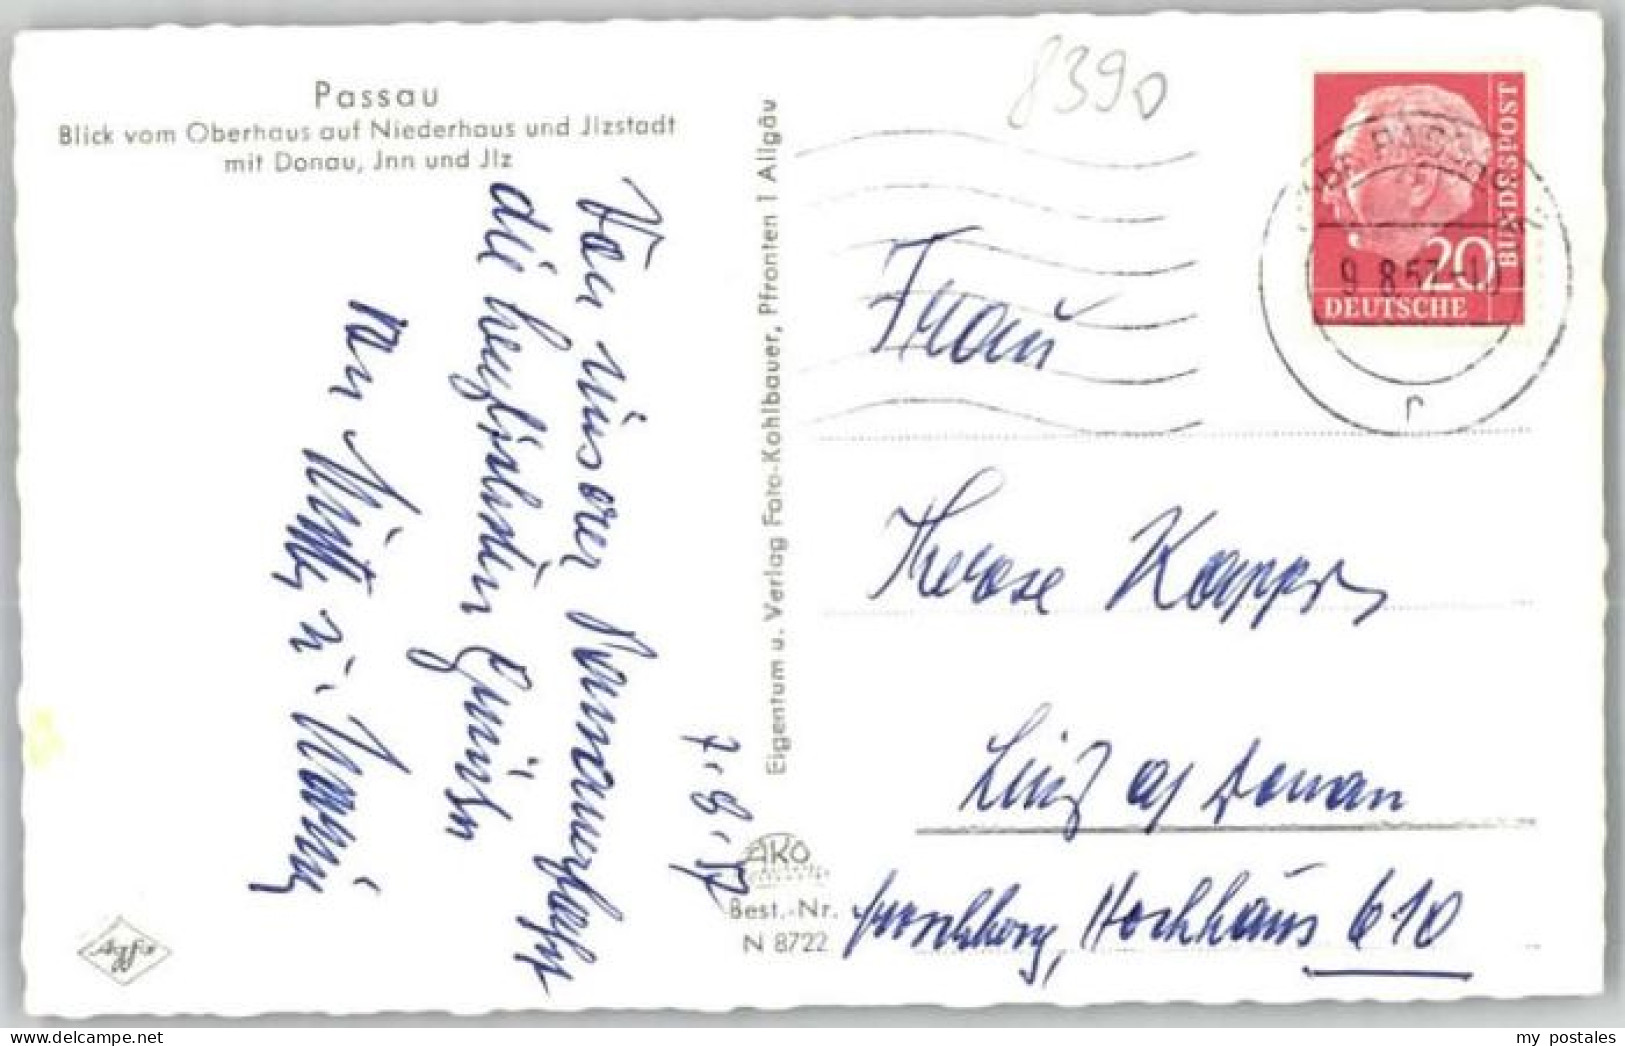 8390
Passau
Blick vom Oberhaus auf Niederhaus und Jlzstadt
mit Donau, Jnn und Jlz
Von unserer
die herzlichsten Grüßen
von
7.8.57
Eigentum u. Verlag Foto-Kohlbauer, Pfronten 1 Allgäu
AKO
Best.-Nr.
N 8722
Agfa
BUNDESPOST
20
DEUTSCHE
9.8.57
r
Frau
Therese
Linz a/ Donau
Hochhaus 610
my postales